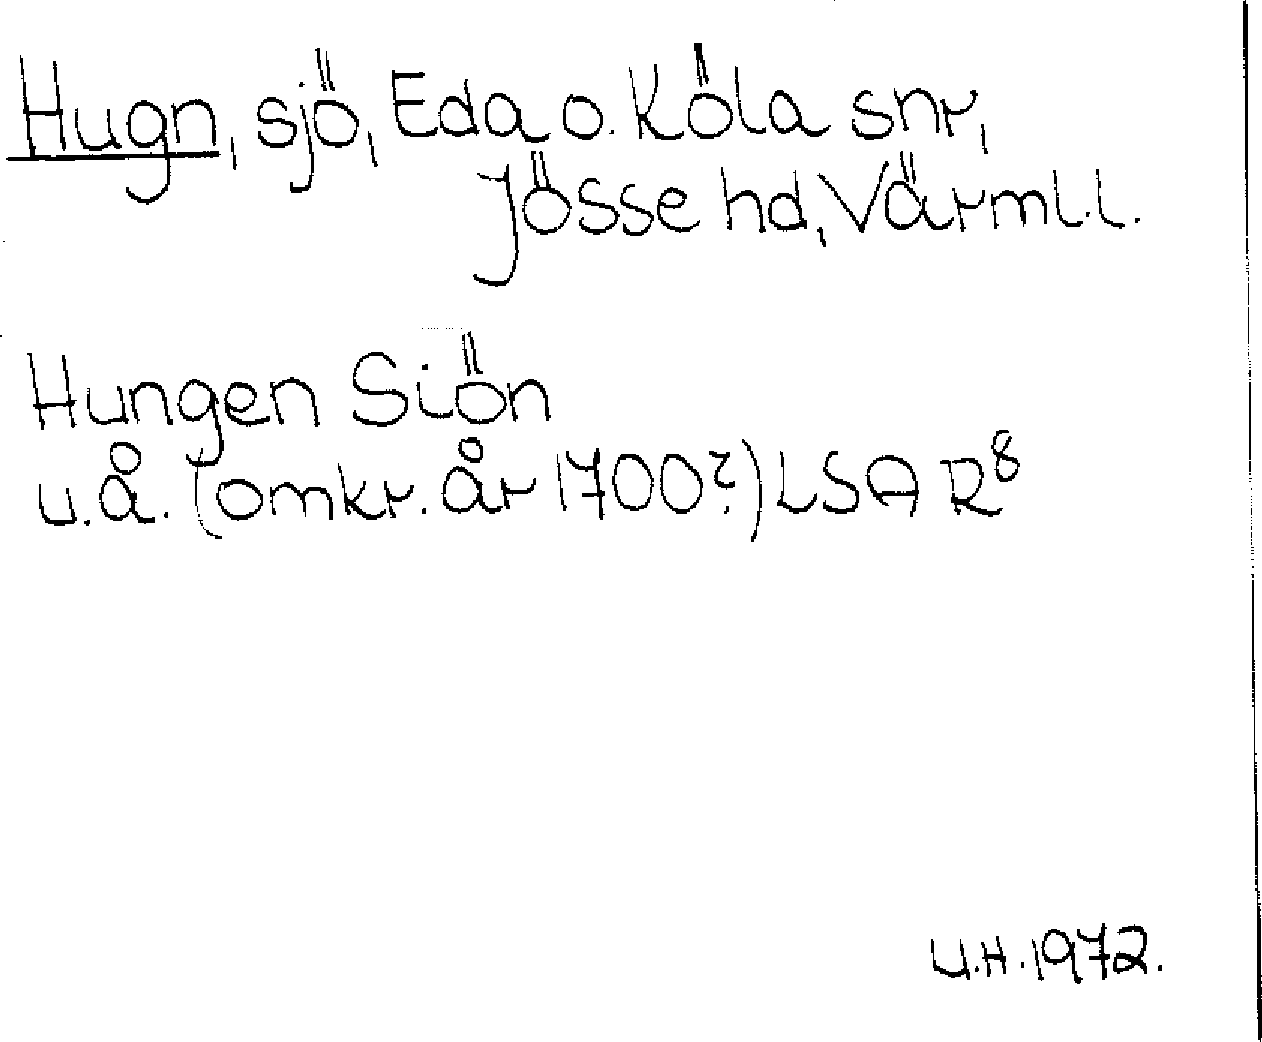 Hugn, sjö, Eda o. Köla snr,
Jösse hd, Värml.l.
Hungen Siön
u.å. (omkr. år 1700?) LSA R⁸
U.H. 1972.